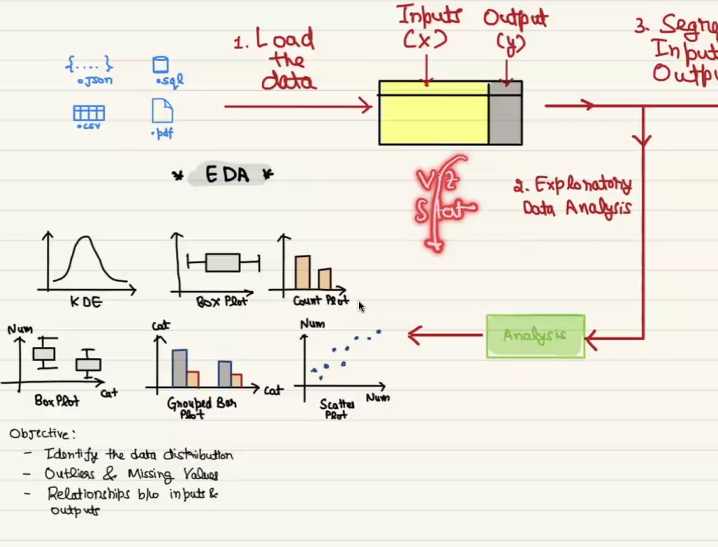 Inputs
(x)
Output
(y)
3. Segre
Inputs
Outpu
1. Load
the
data
{....}
.Json
.sql
.csv
.pdf
* EDA *
Viz
Stat
2. Exploratory
Data Analysis
KDE
Box Plot
Count Plot
Analysis
Num
Cat
Box Plot
Cat
Cat
Grouped Bar
Plot
Num
Num
Scatter
Plot
Objective:
- Identify the data distribution
- Outliers & Missing Values
- Relationships b/w inputs &
outputs